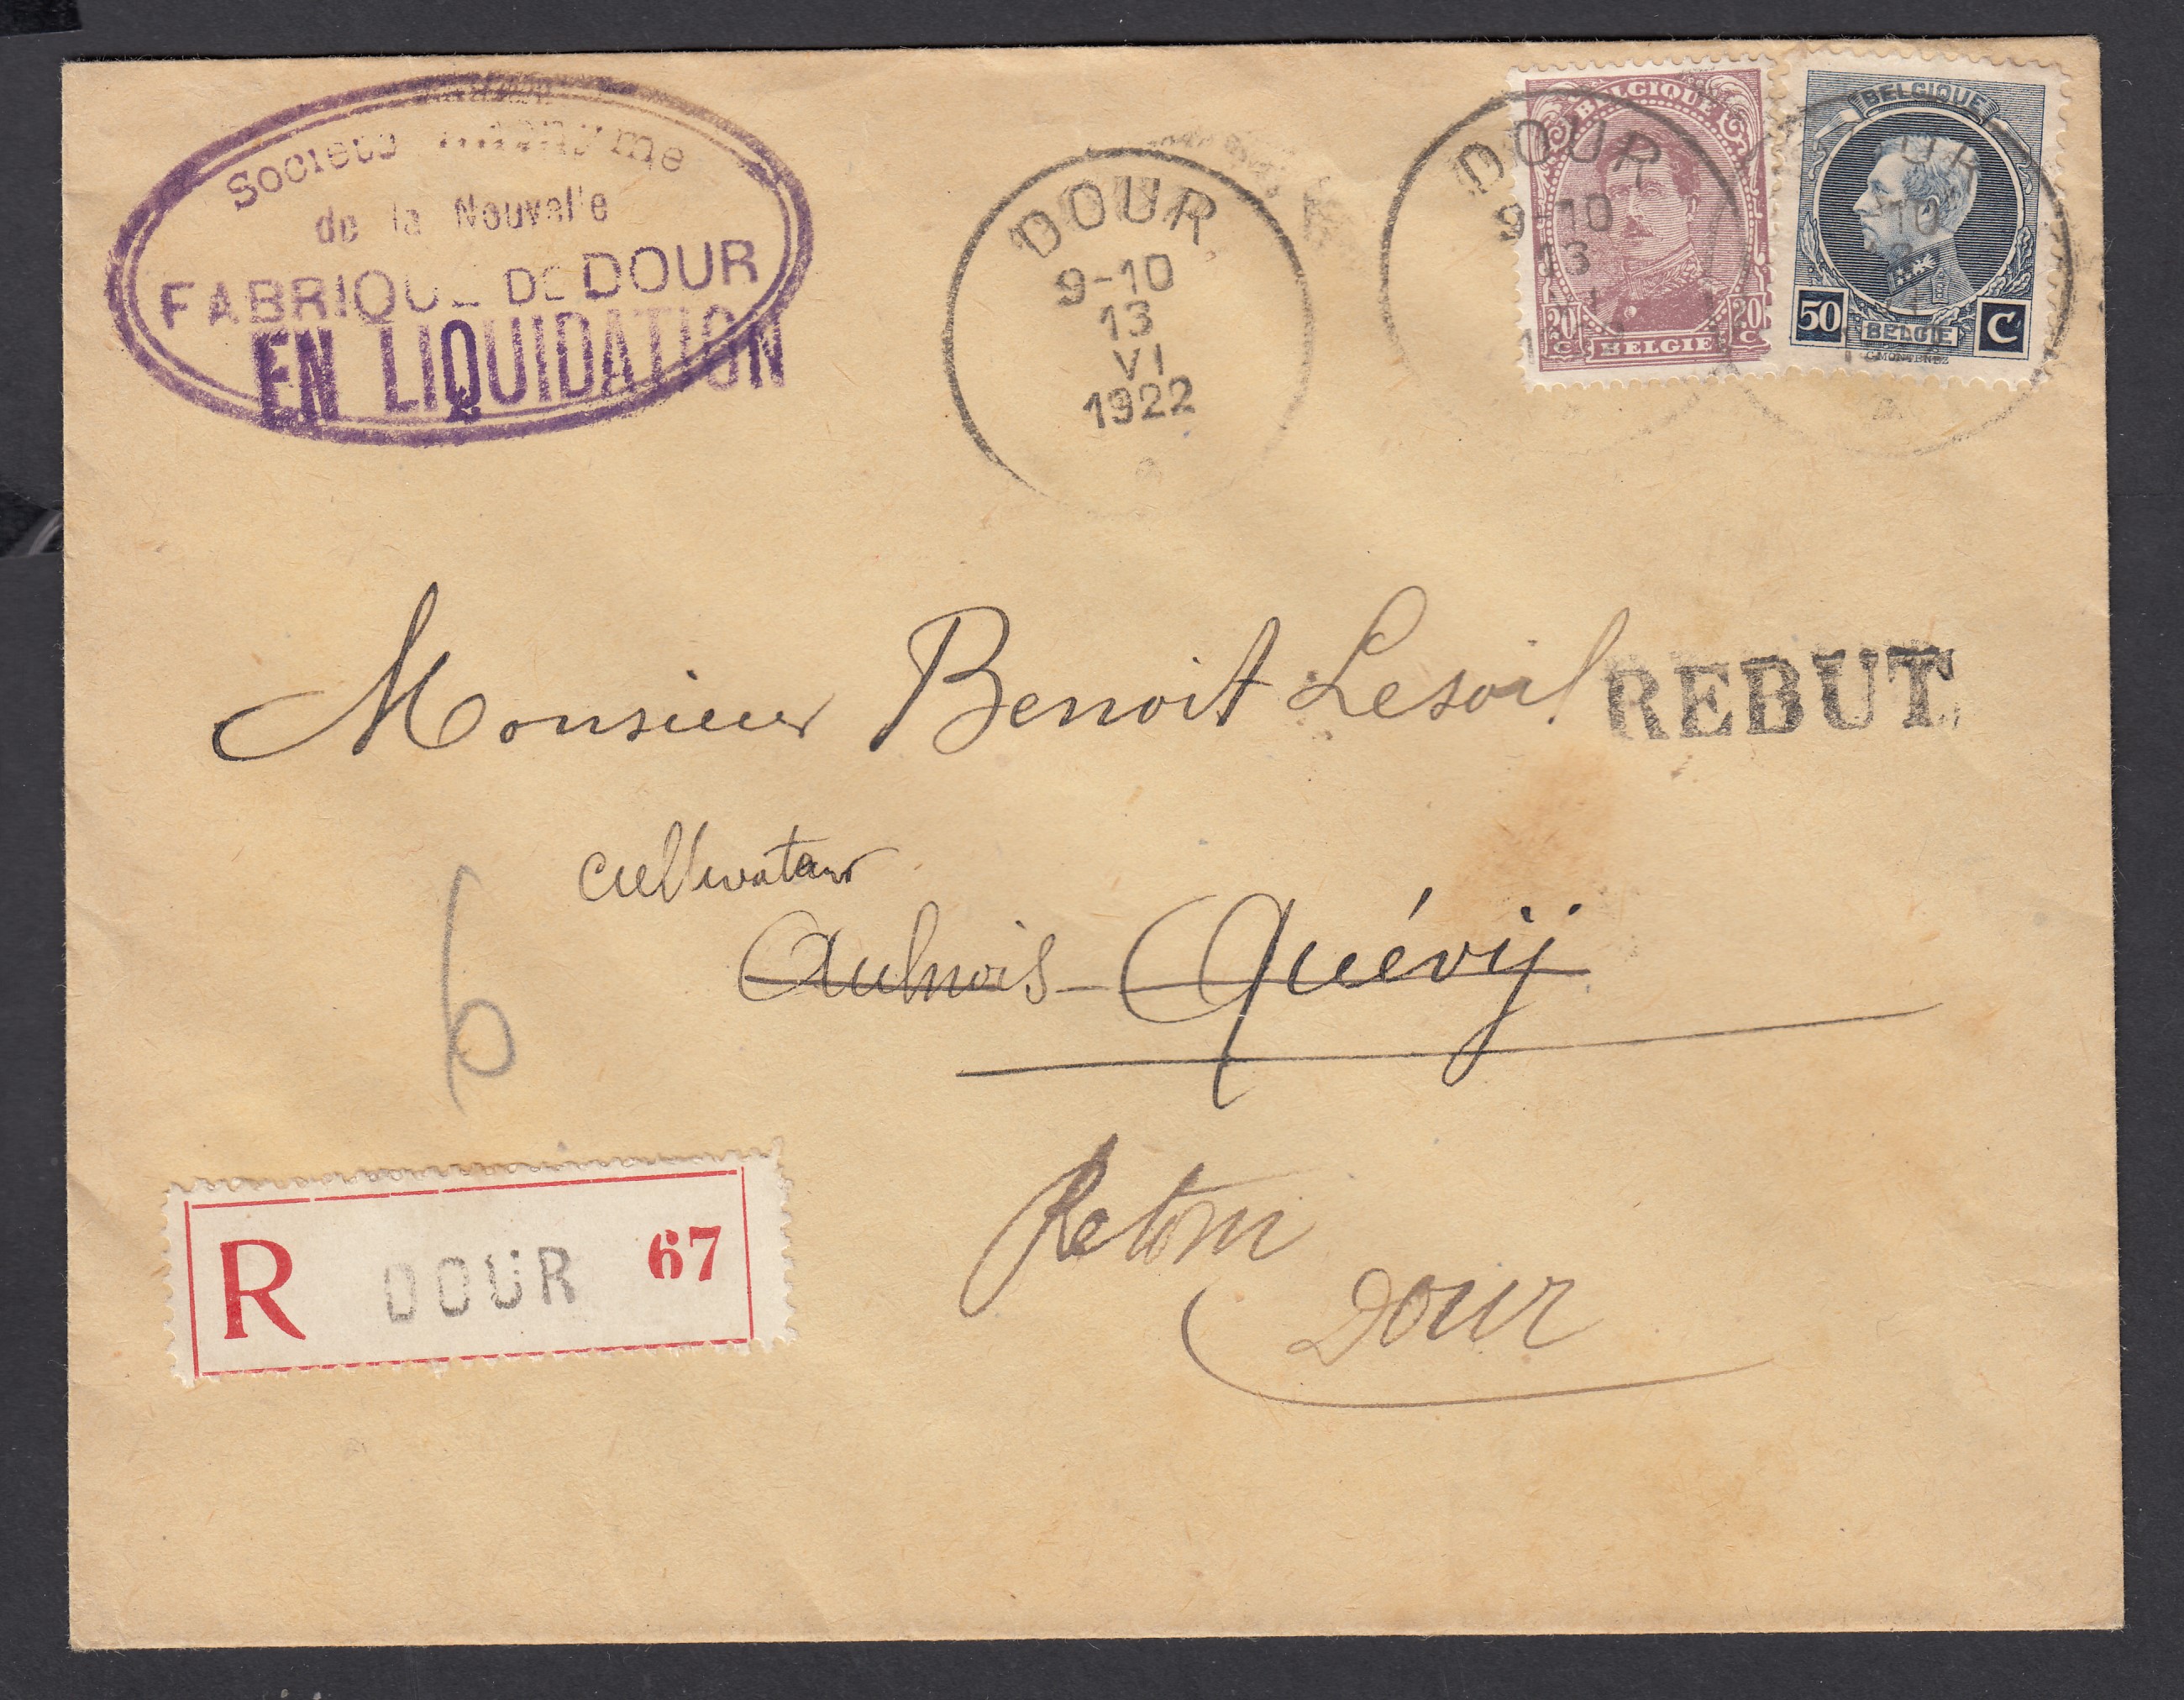 Société Anonyme
de la Nouvelle
FABRIQUE DE DOUR
EN LIQUIDATION
DOUR
9-10
13
VI
1922
DOUR
9-10
13
BELGIQUE
20 C 20 C
BELGIE
BELGIQUE
50 C
BELGIE
C. MONTENEZ
Monsieur Benoit Lesoil
REBUT
cultivateur
Aulnois-Quévij
6
Retour
Dour
R DOUR 67